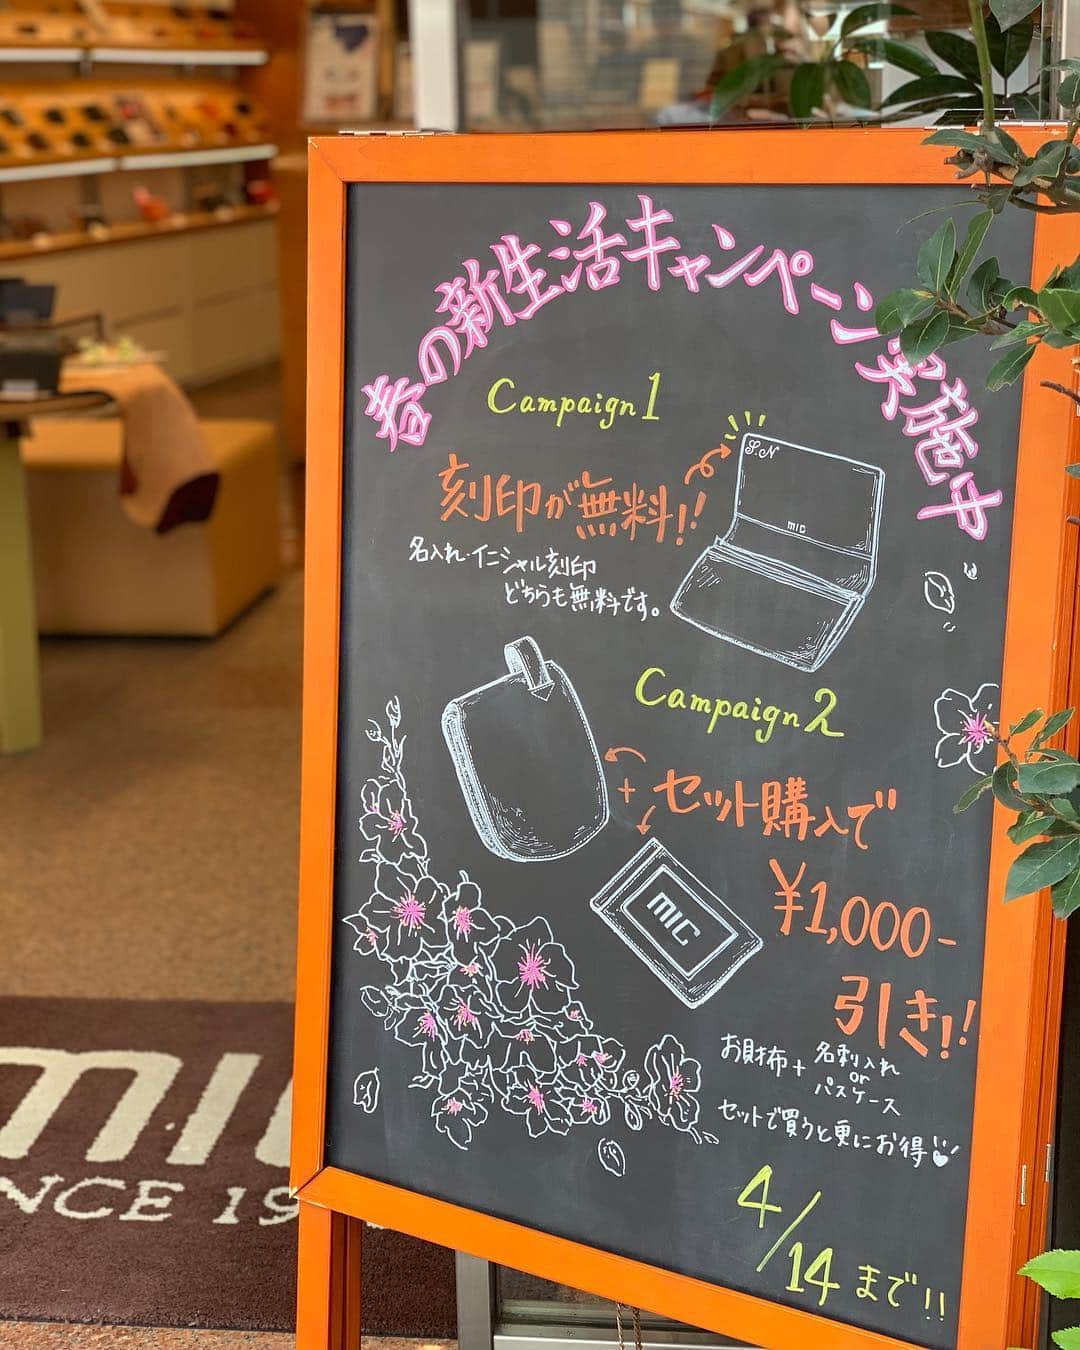 春の新生活キャンペーン実施中
Campaign1
刻印が無料!!
名入れ・イニシャル刻印
どちらも無料です。
S.N
mic
Campaign2
+ セット購入で
¥1,000-
引き!!
MIC
お財布+名刺入れ
or
パスケース
セットで買うと更にお得
4/14まで!!